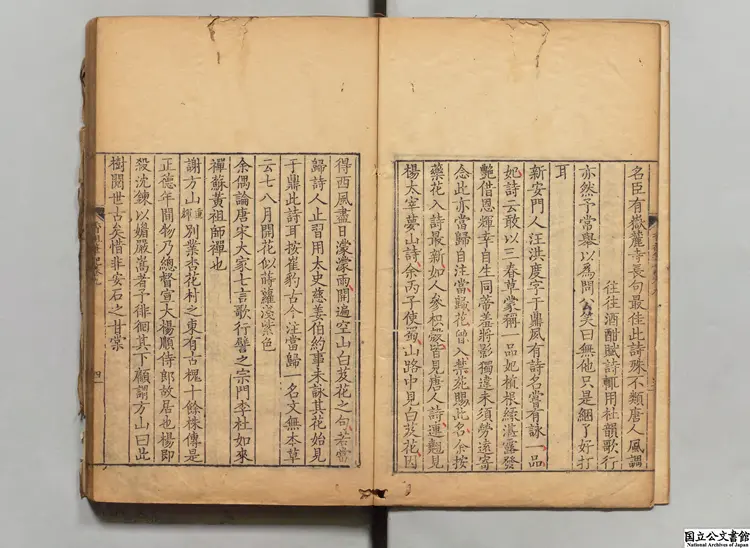 名臣有嶽麓寺長句最佳此詩殊不類唐人風調
往往酒酣賦詩輒用杜韻歌行
亦然予常舉以為問公笑曰無他只是綑了好打
耳
新安門人汪洪度字于鼎夙有詩名嘗有詠一品
妃詩云敢以三春草蒙稱一品妃根綠湛露發
艷借恩輝幸自生同蒂羞將影獨違未須勞遠寄
念此亦當歸自注當歸花曾入禁苑賜此名余按
藥花入詩最新如人參枳殼皆見唐人詩連翹見
楊太宰夢山詩余丙子使蜀山路中見白芨花因
得西風盡日濛濛雨開遍空山白芨花之句若當
歸詩人止習用太史慈姜伯約事未詠其花始見
于鼎此詩耳按崔豹古今注當歸一名文無本草
云七八月開花似蒔蘿淺紫色
余偶論唐宋大家七言歌行譬之宗門李杜如來
禪蘇黃祖師禪也
謝方山重輝別業杏花村之東有古槐十餘株傳是
正德年間物乃總督宣大楊順侍郎故居也楊即
殺沈鍊以媚嚴嵩者予徘徊其下顧謂方山曰此
樹閱世古矣惜非安石之甘棠
四
国立公文書館
National Archives of Japan